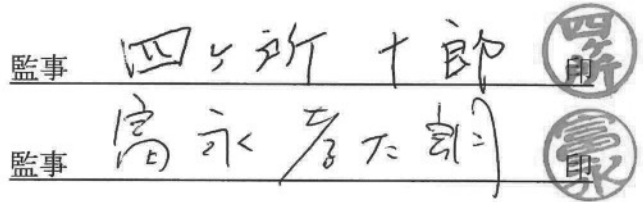 監事 四ヶ所十郎 印 四ヶ所
監事 富永孝太朗 印 富永